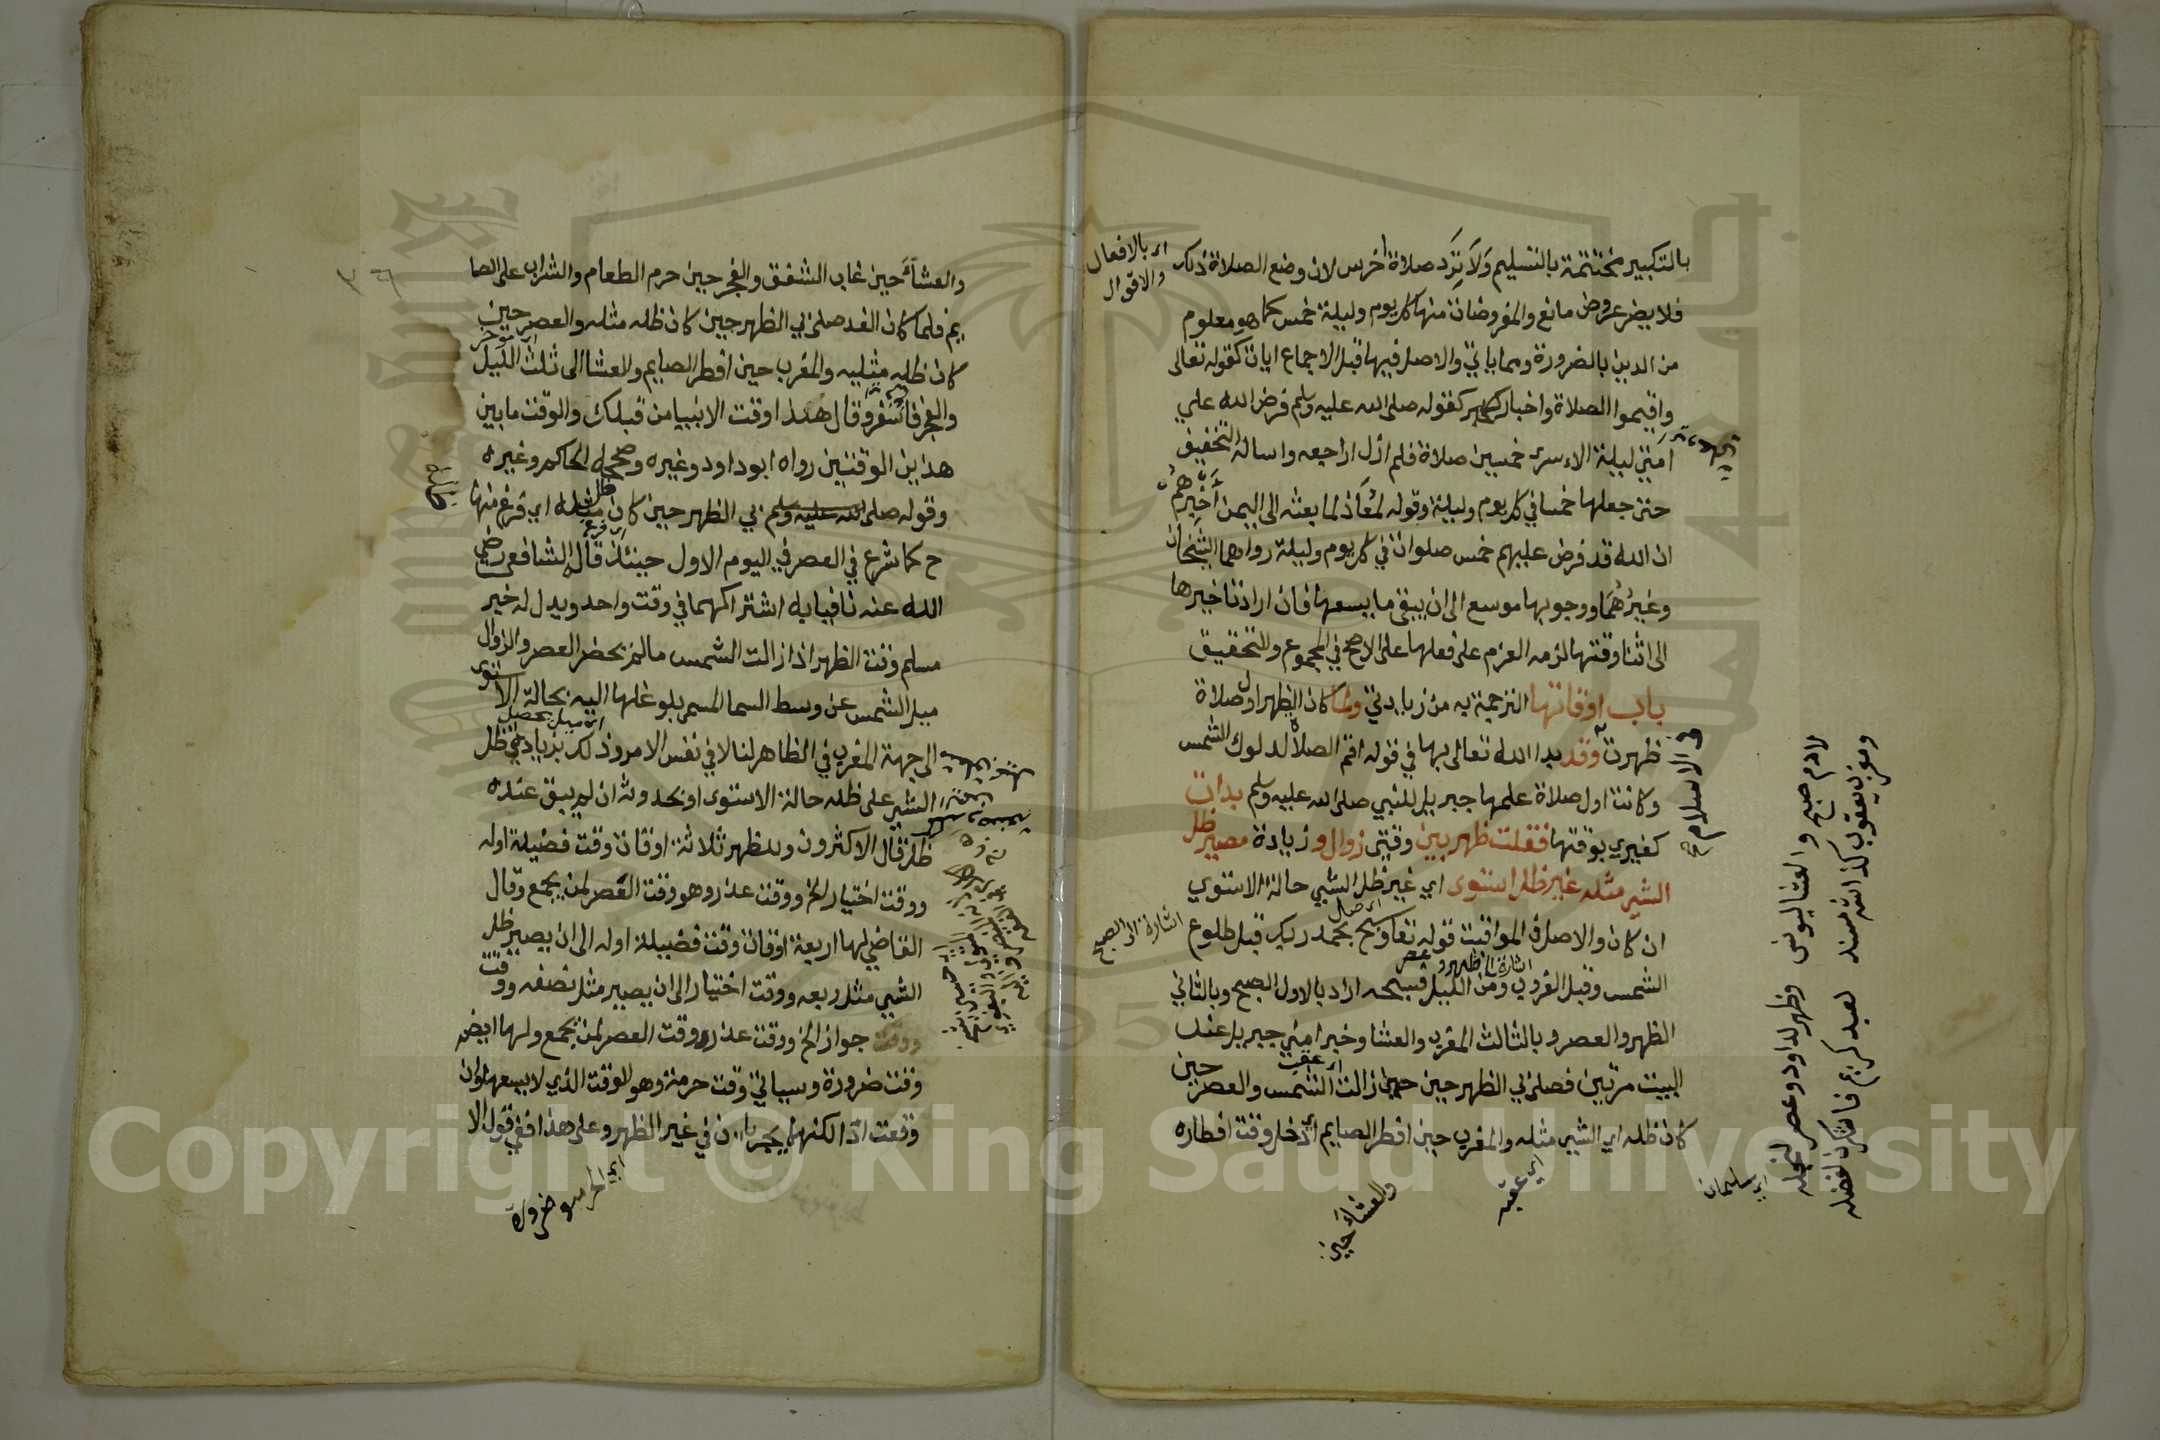 بالتكبير مختتمة بالتسليم ولا ترد صلاة اخرس لان وضع الصلاة ذلك
اي بالافعال
والاقوال
فلا يضر عروض مانع والمفروضات منها كل يوم وليلة خمس كما هو معلوم
من الدين بالضرورة ومما ياتي والاصل فيها قبل الاجماع ايات كقوله تعالى
واقيموا الصلاة واخبار كقوله صلى الله عليه وسلم فرض الله علي
امتي ليلة الاسرى خمسين صلاة فلم ازل اراجعه واساله التخفيف
حتى جعلها خمسا في كل يوم وليلة وقوله لمعاذ لما بعثه الى اليمن اخبرهم
ان الله قد فرض عليهم خمس صلوات في كل يوم وليلة رواهما الشيخان
وغيرهما ووجوبها موسع الى ان يبقى ما يسعها فان اراد تاخيرها
الى اثنا وقتها لزمه العزم على فعلها على الاصح في المجموع والتحقيق
باب اوقاتها الترجمة به من زيادتي ولما كان الظهر اول صلاة
ظهرت وقد بدا الله تعالى بها في قوله اقم الصلاة لدلوك الشمس
وكانت اول صلاة علمها جبريل للنبي صلى الله عليه وسلم بدات
كغيري بوقتها فقلت ظهر بين وقتي زوال وزيادة مصير ظل
الشي مثله غير ظل استوى اي غير ظل الشي حالة الاستوي
ان كان والاصل في المواقيت قوله تعا وسبح بحمد ربك قبل طلوع
اي صل
اشارة الى الصبح
الشمس وقبل الغروب ومن الليل فسبحه اراد بالاول الصبح وبالثاني
اشارة الظهر وعصر
الظهر والعصر وبالثالث المغرب والعشا وخبر امني جبريل عند
البيت مرتين فصلى بي الظهر حين زالت الشمس والعصر حين
اي عقب
كان ظله اي الشي مثله والمغرب حين افطر الصايم اي دخل وقت افطاره
اي عقبه
والعشاء حين
لادم صبح والعشا ليونس وظهر لداود وعصر لنجله
ومغرب يعقوب كذا شرح مسند لعبد كريم فاشكرن لفضله
اي سليمان
والعشاء حين غاب الشفق والفجر حين حرم الطعام والشراب على الصا
يم فلما كان الغد صلى بي الظهر حين كان ظله مثله والعصر حين
كان ظله مثليه والمغرب حين افطر الصايم والعشا الى ثلث الليل
والفجر فاسفر وقال هذا وقت الانبيا من قبلك والوقت ما بين
هذين الوقتين رواه ابو داود وغيره وصححه الحاكم وغيره
وقوله صلى بي الظهر حين كان ظله مثله اي فرغ منها
ح كما شرع في العصر في اليوم الاول حينئذ قاله الشافعي رضي
الله عنه نافيا به اشتراكهما في وقت واحد ويدل له خبر
مسلم وقت الظهر اذا زالت الشمس ما لم يحضر العصر والزوال
ميل الشمس عن وسط السما المسمى بلوغها اليه بحالة الاستوى
الى جهة المغرب في الظاهر لنا لا في نفس الامر وذلك بزيادة ظل
اي ميل يحصل
الشي على ظله حالة الاستوى او بحدوثه ان لم يبق عنده
ظل قال الاكثرون وللظهر ثلاثة اوقات وقت فضيلة اوله
ووقت اختيار الخ ووقت عذر وهو وقت العصر لمن يجمع وقال
القاضي لها اربعة اوقات وقت فضيلة اوله الى ان يصير ظل
الشي مثل ربعه ووقت اختيار الى ان يصير مثل نصفه ووقت
جواز الخ ووقت عذر وقت العصر لمن يجمع ولها ايضا
وقت ضرورة وسياتي وقت حرمة وهو الوقت الذي لا يسعها وان
وقعت ادا لكنهما يجريان في غير الظهر وعلى هذا ففي قول الا
اي الحرمه وضرورة
Copyright © King Saud University